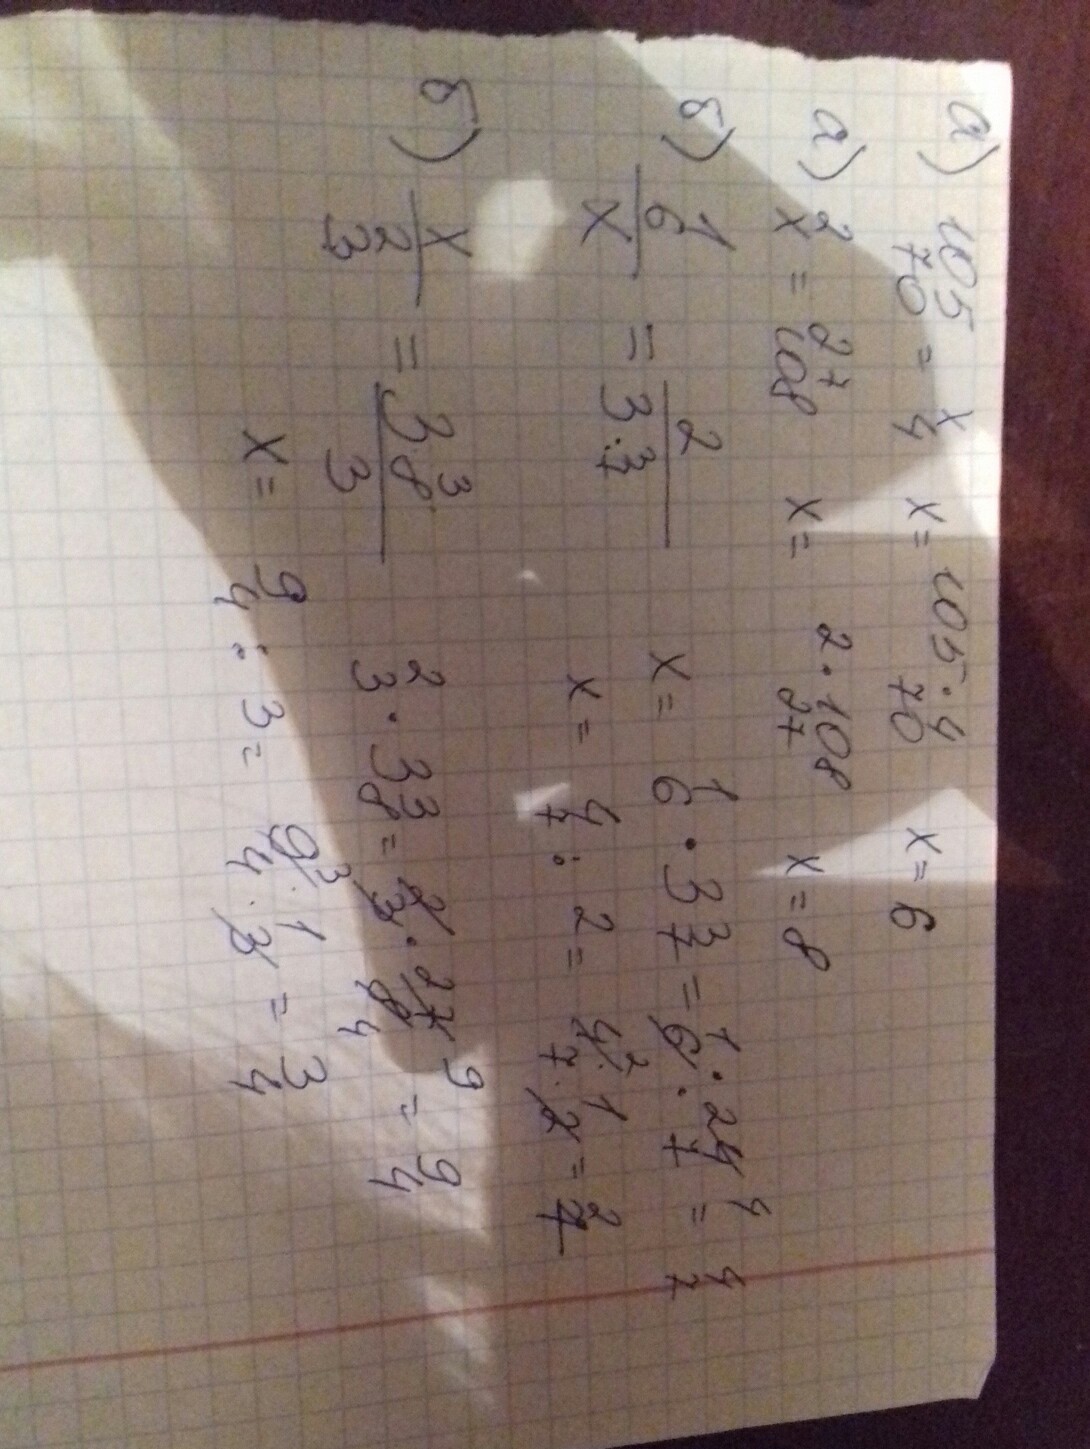 а) 105/70 = x/4 x = 105·4/70 x = 6
а) 2/x = 27/108 x = 2·108/27 x = 8
б) 1/6 / x = 2 / 3 3/7 x = 1/6 · 3 3/7 = 1/6 · 24/7 4 = 4/7
x = 4/7 : 2 = 4/7 2 · 1/2 = 2/7
б) x / 2/3 = 3 3/8 / 3 2/3 · 3 3/8 = 2/3 · 27/8 9 4 = 9/4
x = 9/4 : 3 = 9/4 3 · 1/3 = 3/4